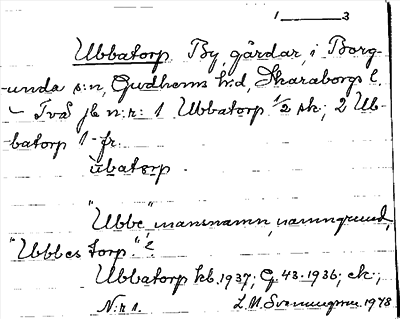 1 ——— 3
Ubbatorp By, gårdar, i Borg-
unda s:n, Gudhems h:d, Skaraborgs l.
– Två jb n:r: 1 Ubbatorp 1/2 sk; 2 Ub-
batorp 1 fr.
ùbatorp.
"Ubbe", mansnamn, namngrund,
"Ubbes torp". ?
Ubbatorp kb. 1937; G. 43. 1936; ek.;
N:r 1. L.M. Svenungson 1948